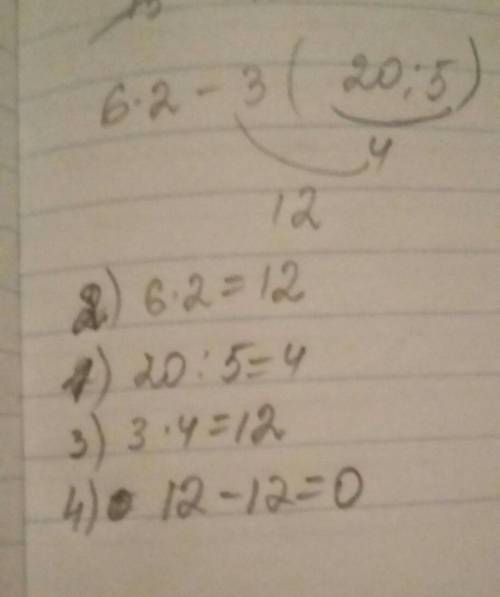 6·2 - 3 ( 20:5)
4
12
2) 6·2=12
1) 20:5=4
3) 3·4=12
4) 12-12=0